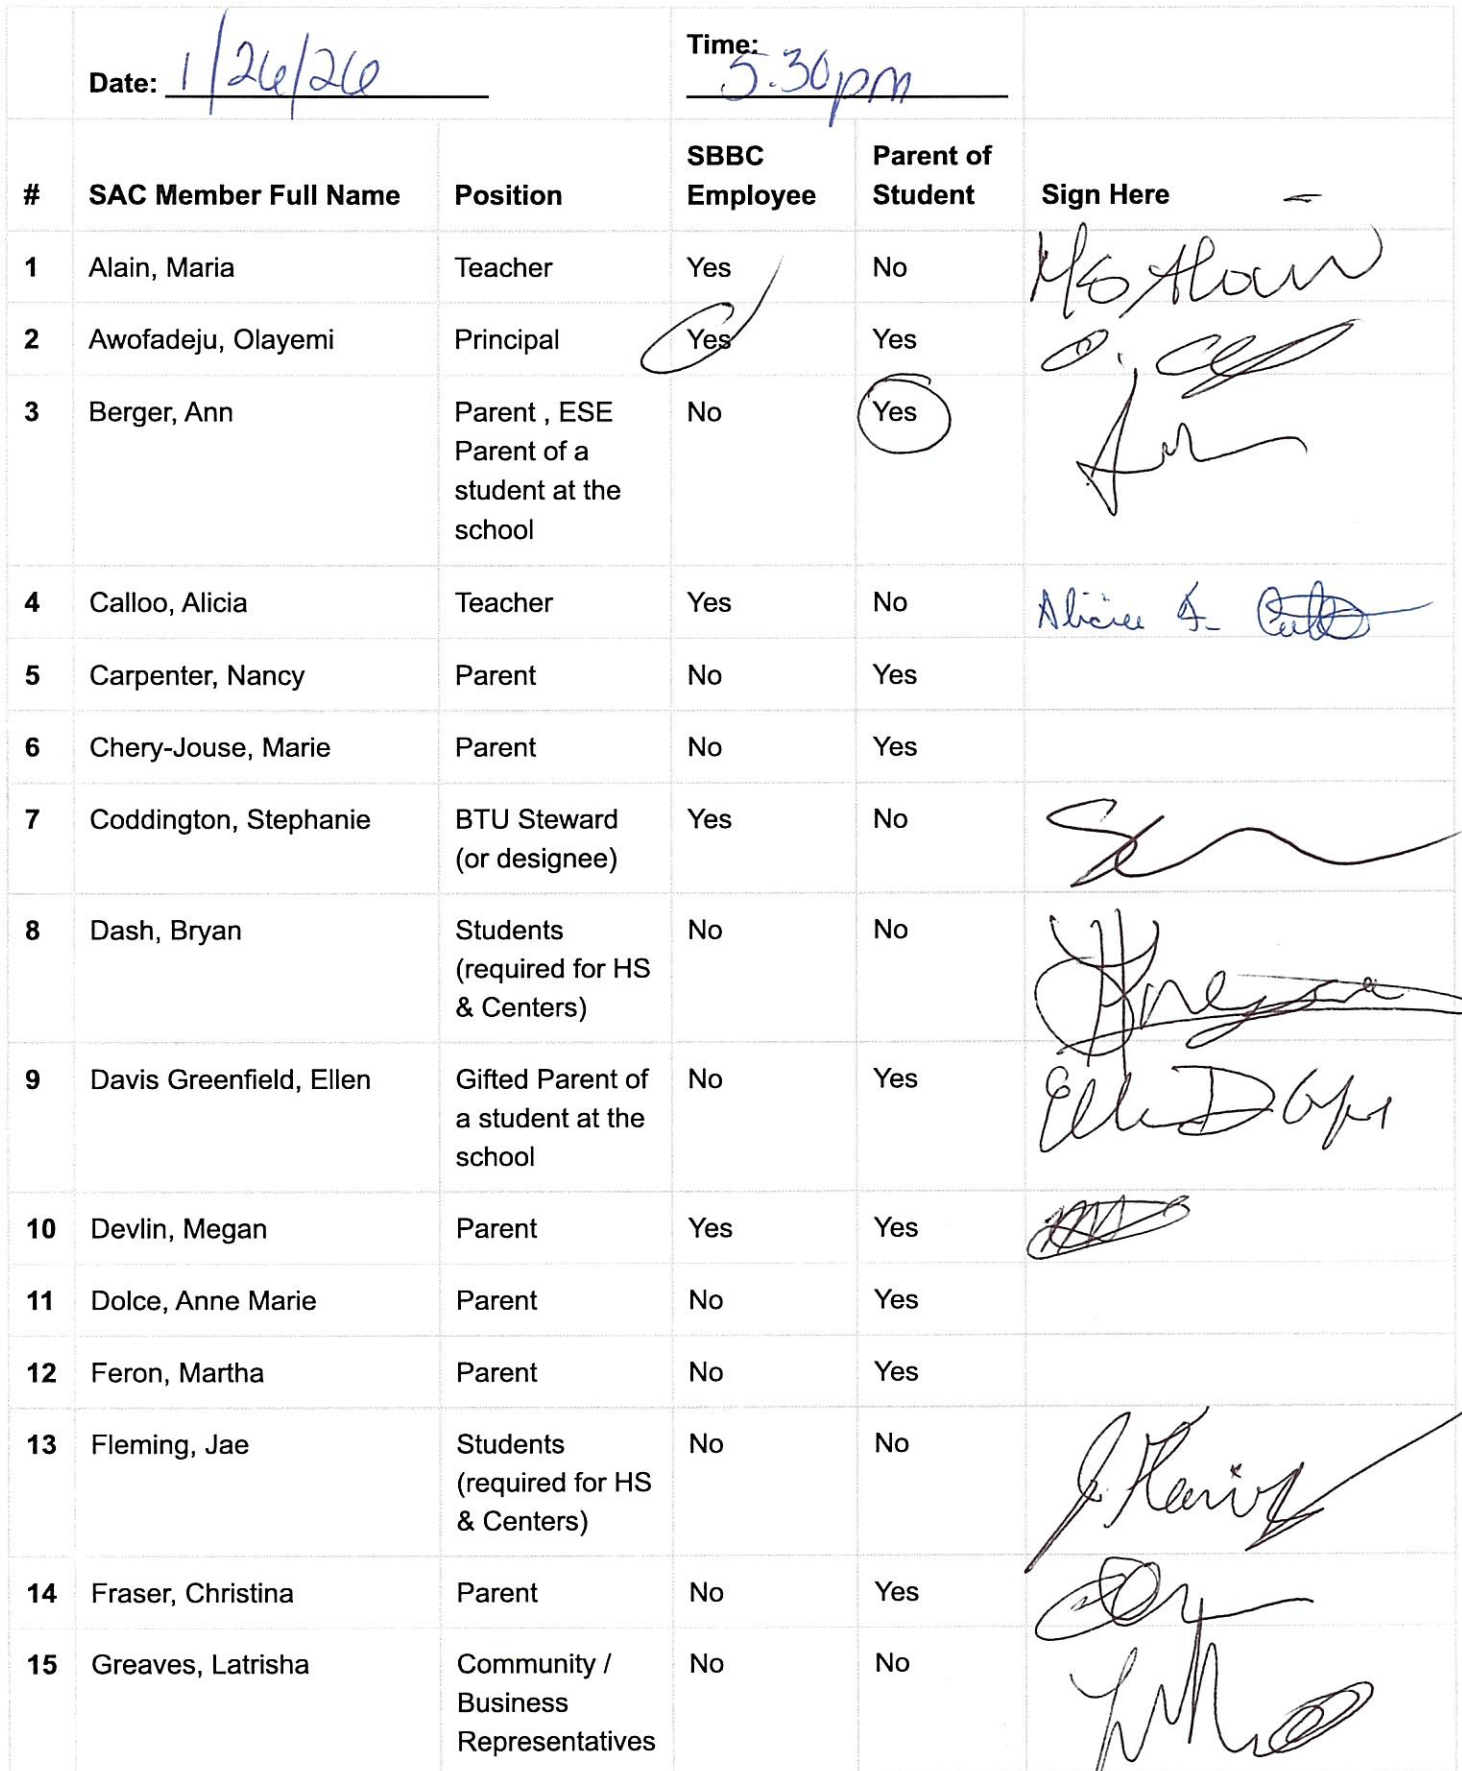 Date: 1/26/26 Time: 5:30pm
# SAC Member Full Name Position SBBC Employee Parent of Student Sign Here
1 Alain, Maria Teacher Yes No Ms Alain
2 Awofadeju, Olayemi Principal Yes Yes
3 Berger, Ann Parent , ESE Parent of a student at the school No Yes
4 Calloo, Alicia Teacher Yes No Alicia
5 Carpenter, Nancy Parent No Yes
6 Chery-Jouse, Marie Parent No Yes
7 Coddington, Stephanie BTU Steward (or designee) Yes No
8 Dash, Bryan Students (required for HS & Centers) No No
9 Davis Greenfield, Ellen Gifted Parent of a student at the school No Yes
10 Devlin, Megan Parent Yes Yes
11 Dolce, Anne Marie Parent No Yes
12 Feron, Martha Parent No Yes
13 Fleming, Jae Students (required for HS & Centers) No No
14 Fraser, Christina Parent No Yes
15 Greaves, Latrisha Community / Business Representatives No No